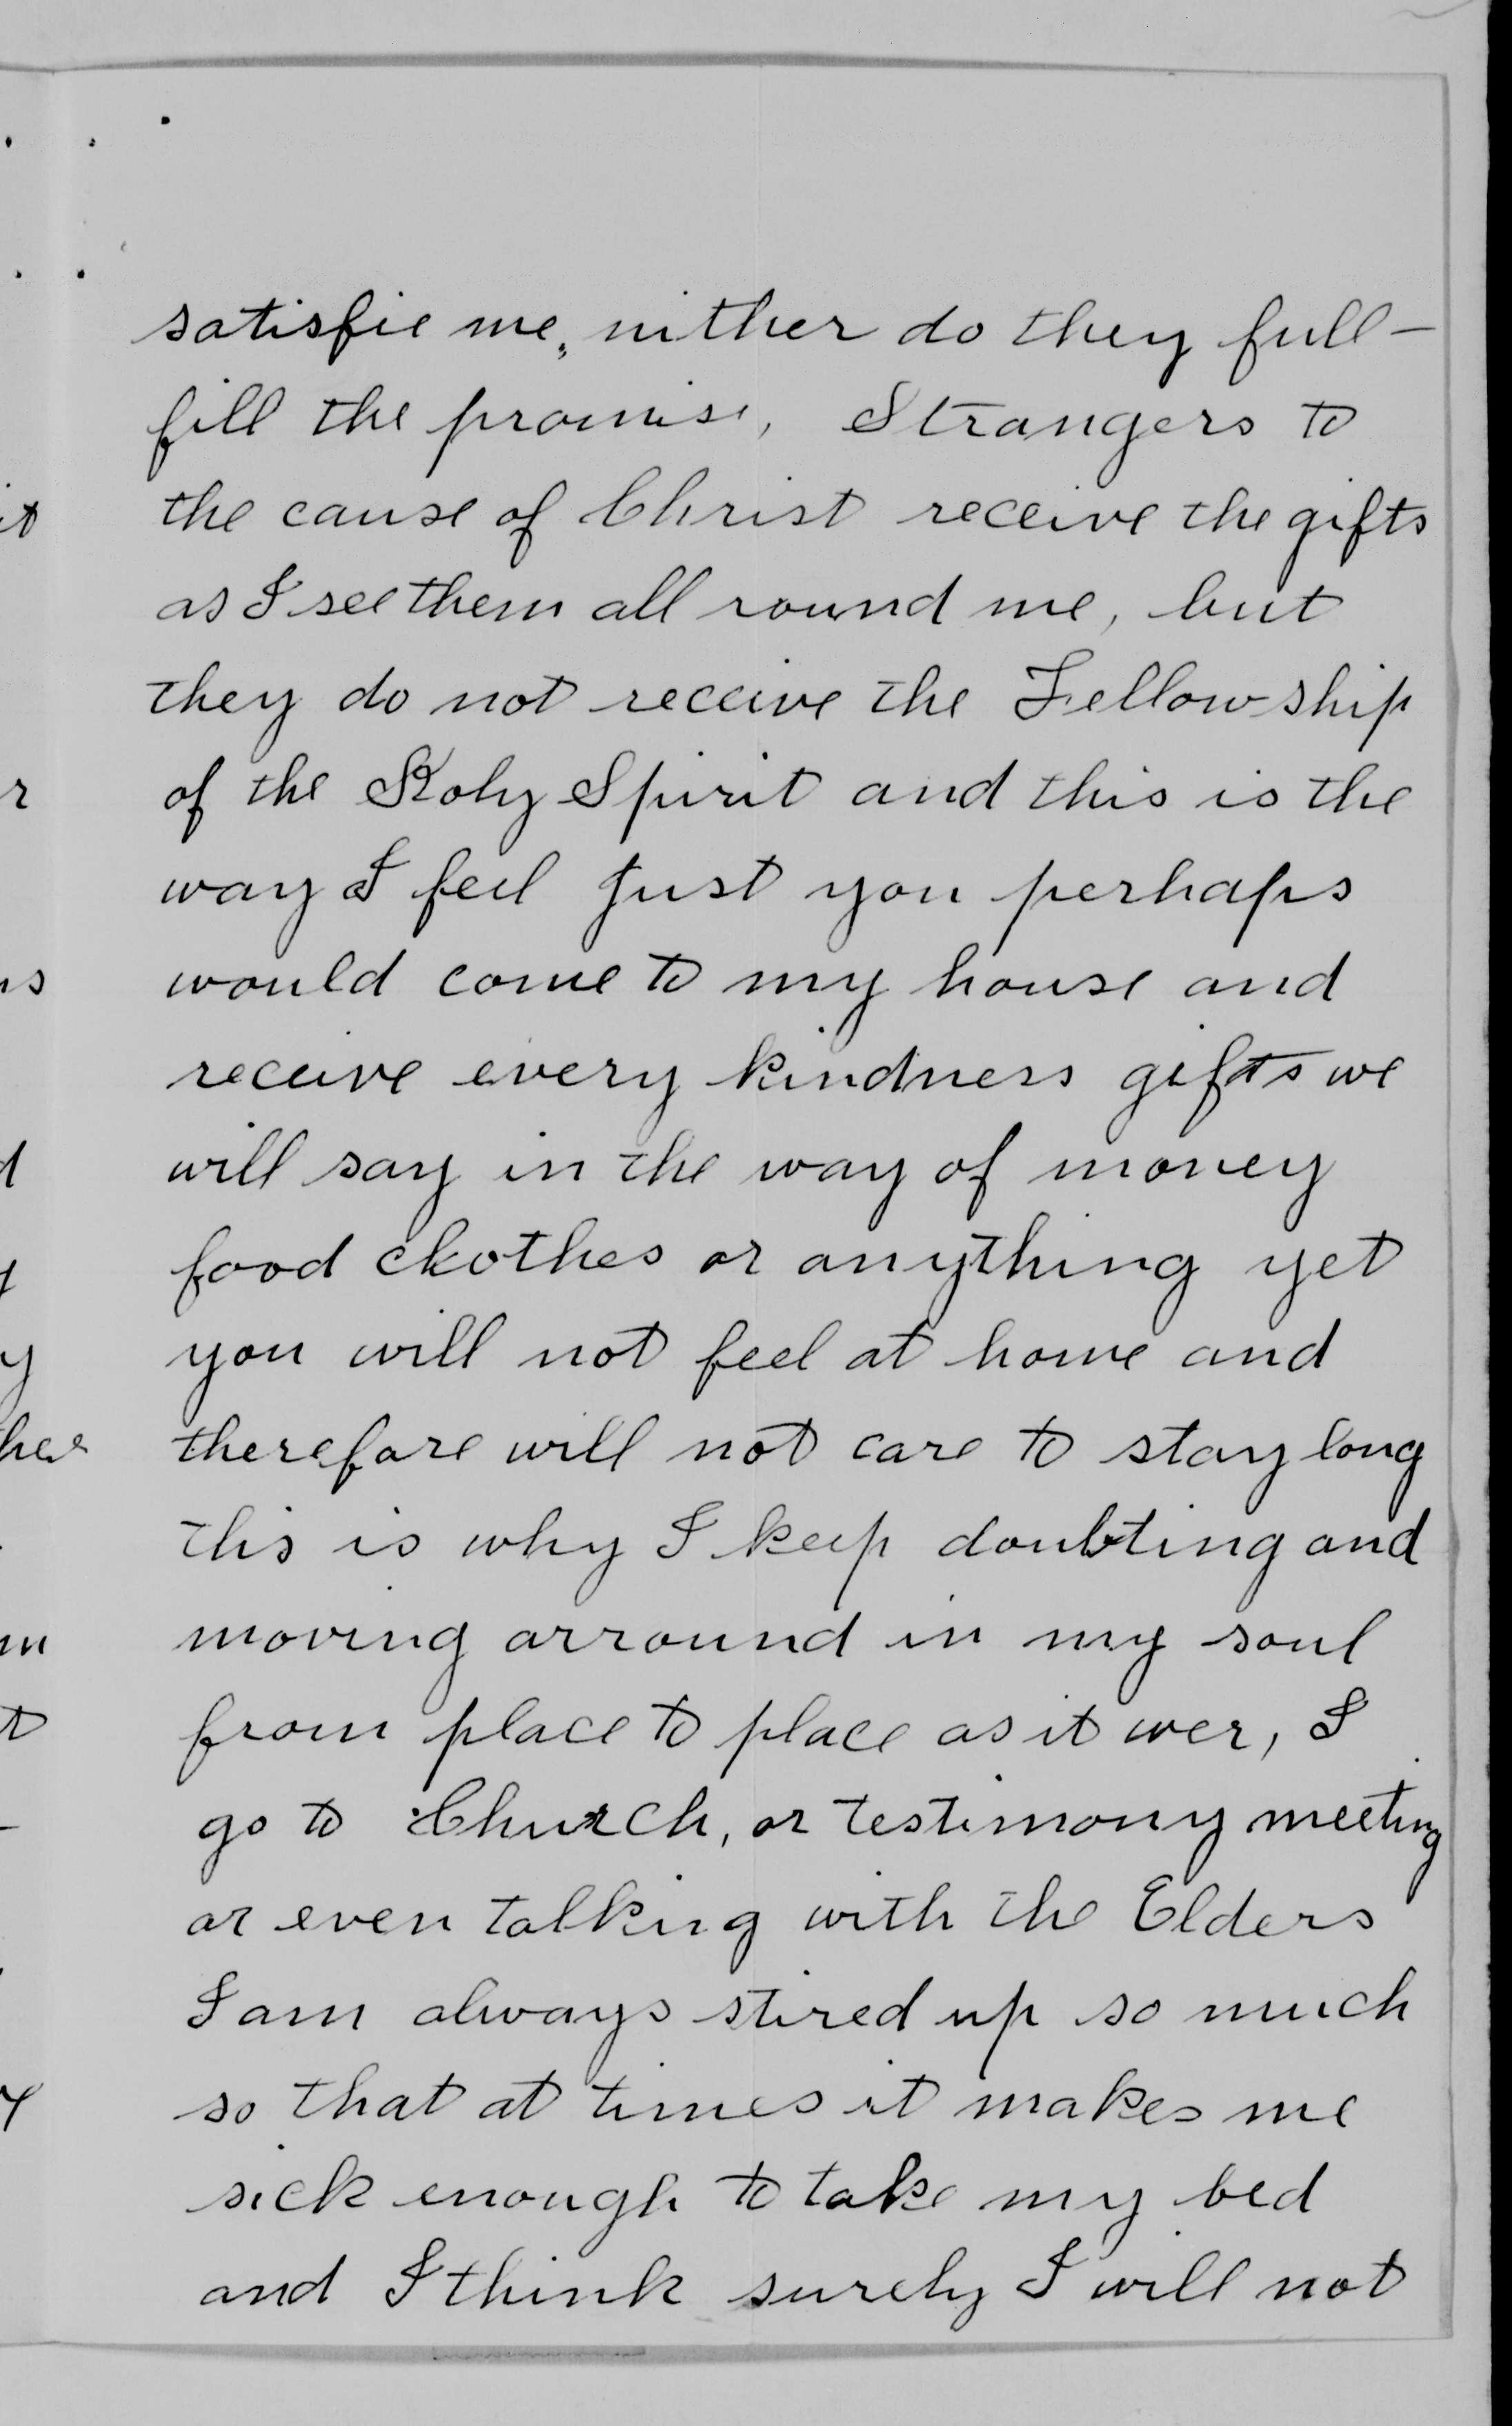 satisfie me, nither do they full-
fill the promise, Strangers to
the cause of Christ receive the gifts
as I see them all round me, but
they do not receive the Fellowship
of the Holy Spirit and this is the
way I feel Just you perhaps
would come to my house and
receive every kindness gifts we
will say in the way of money
food clothes or anything yet
you will not feel at home and
therefore will not care to stay long
this is why I keep doubting and
moving arround in my soul
from place to place as it wer, I
go to Church, or testimony meeting
or even talking with the Elders
I am always stired up so much
so that at times it makes me
sick enough to take my bed
and I think surely I will not